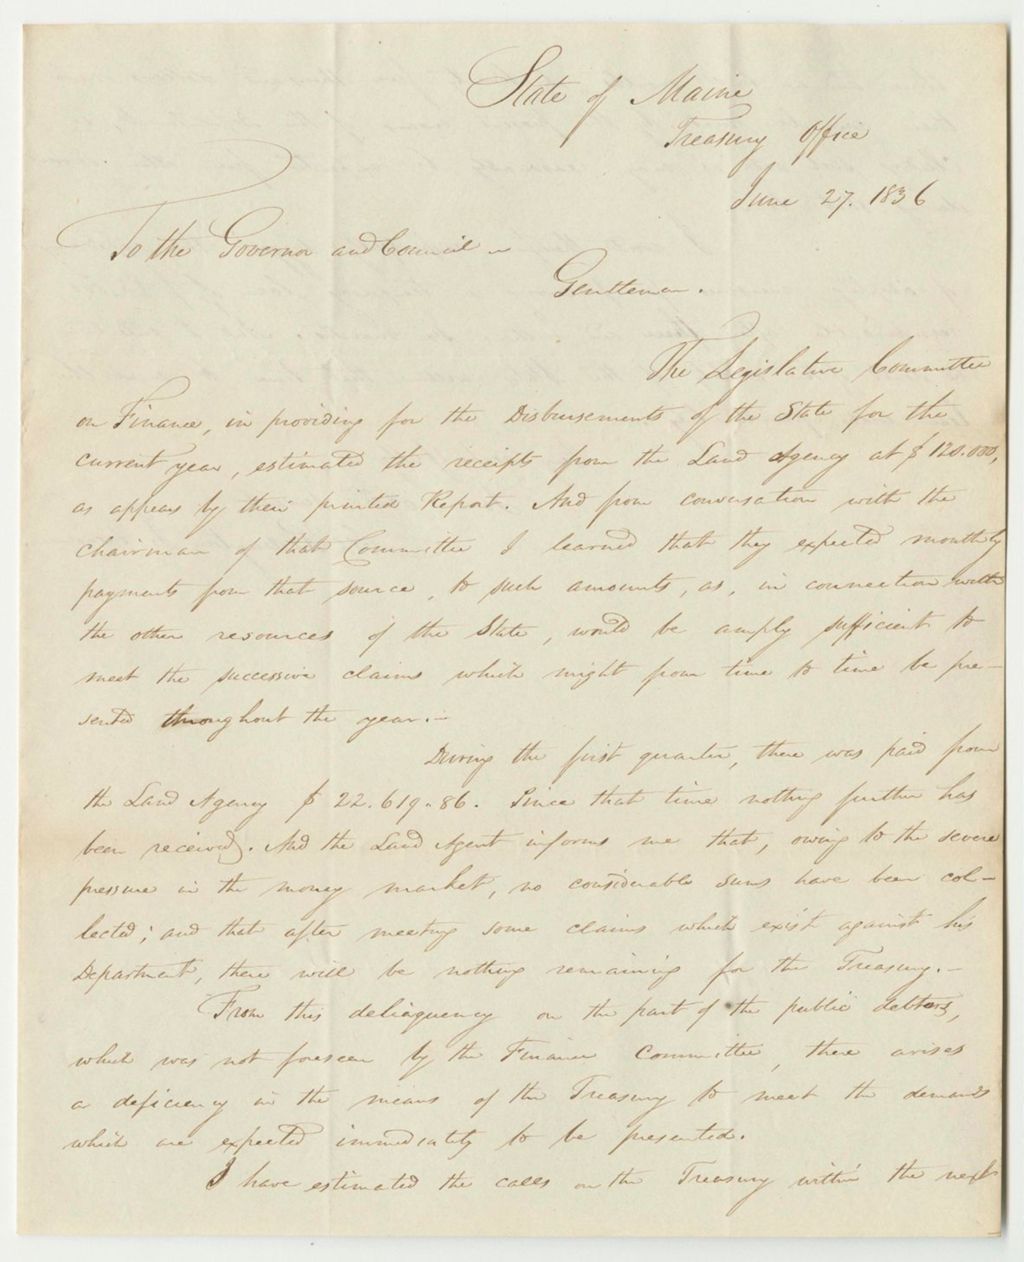 State of Maine
Treasury Office
June 27. 1836
To the Governor and Council
Gentlemen.
The Legislative Committee
on Finance, in providing for the Disbursements of the State for the
current year, estimated the receipts from the Land Agency at $120.000,
as appears by their printed Report. And from conversation with the
Chairman of that Committee I learned that they expected monthly
payments from that source, to such amounts, as, in connection with
the other resources of the State, would be amply sufficient to
meet the successive claims which might from time to time be pre-
sented throughout the year.-
During the first quarter, there was paid from
the Land Agency $22.619.86. Since that time nothing further has
been received. And the Land Agent informs me that, owing to the severe
pressure in the money market, no considerable sums have been col-
lected; and that after meeting some claims which exist against his
Department, there will be nothing remaining for the Treasury.-
From this delinquency on the part of the public debtors,
which was not foreseen by the Finance Committee, there arises
a deficiency in the means of the Treasury to meet the demands
which are expected immediately to be presented.
I have estimated the calls on the Treasury within the next